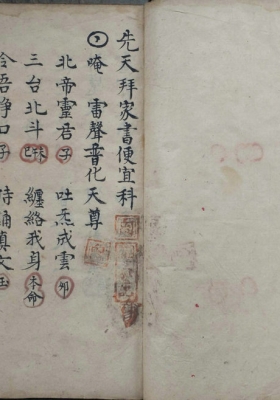 先天拜家書便宜科
唵 雷聲普化天尊
北帝靈君子 吐炁成雲卯
三台北斗 纏絡我身本命
令吾淨口子 持誦真文玉